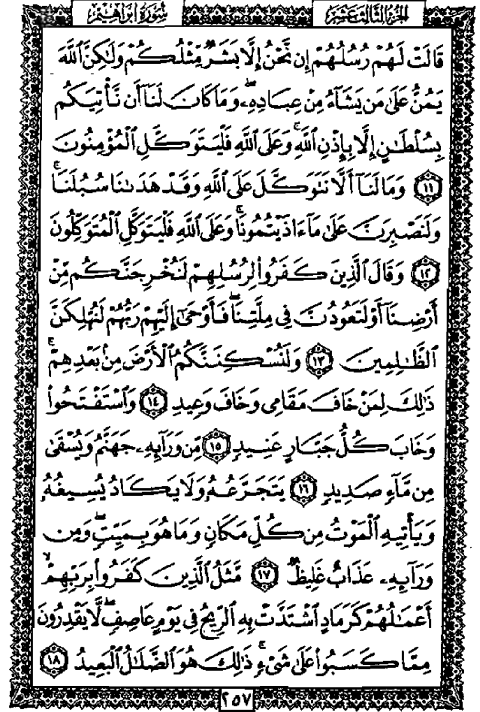 الجزء الثالث عشر سورة إبراهيم
قَالَتْ لَهُمْ رُسُلُهُمْ إِن نَّحْنُ إِلَّا بَشَرٌ مِّثْلُكُمْ وَلَٰكِنَّ اللَّهَ
يَمُنُّ عَلَىٰ مَن يَشَاءُ مِنْ عِبَادِهِ ۖ وَمَا كَانَ لَنَا أَن نَّأْتِيَكُم
بِسُلْطَانٍ إِلَّا بِإِذْنِ اللَّهِ ۚ وَعَلَى اللَّهِ فَلْيَتَوَكَّلِ الْمُؤْمِنُونَ
١١ وَمَا لَنَا أَلَّا نَتَوَكَّلَ عَلَى اللَّهِ وَقَدْ هَدَانَا سُبُلَنَا ۚ
وَلَنَصْبِرَنَّ عَلَىٰ مَا آذَيْتُمُونَا ۚ وَعَلَى اللَّهِ فَلْيَتَوَكَّلِ الْمُتَوَكِّلُونَ
١٢ وَقَالَ الَّذِينَ كَفَرُوا لِرُسُلِهِمْ لَنُخْرِجَنَّكُم مِّنْ
أَرْضِنَا أَوْ لَتَعُودُنَّ فِي مِلَّتِنَا ۖ فَأَوْحَىٰ إِلَيْهِمْ رَبُّهُمْ لَنُهْلِكَنَّ
الظَّالِمِينَ ١٣ وَلَنُسْكِنَنَّكُمُ الْأَرْضَ مِن بَعْدِهِمْ ۚ
ذَٰلِكَ لِمَنْ خَافَ مَقَامِي وَخَافَ وَعِيدِ ١٤ وَاسْتَفْتَحُوا
وَخَابَ كُلُّ جَبَّارٍ عَنِيدٍ ١٥ مِّن وَرَائِهِ جَهَنَّمُ وَيُسْقَىٰ
مِن مَّاءٍ صَدِيدٍ ١٦ يَتَجَرَّعُهُ وَلَا يَكَادُ يُسِيغُهُ
وَيَأْتِيهِ الْمَوْتُ مِن كُلِّ مَكَانٍ وَمَا هُوَ بِمَيِّتٍ ۖ وَمِن
وَرَائِهِ عَذَابٌ غَلِيظٌ ١٧ مَّثَلُ الَّذِينَ كَفَرُوا بِرَبِّهِمْ ۖ
أَعْمَالُهُمْ كَرَمَادٍ اشْتَدَّتْ بِهِ الرِّيحُ فِي يَوْمٍ عَاصِفٍ ۖ لَّا يَقْدِرُونَ
مِمَّا كَسَبُوا عَلَىٰ شَيْءٍ ۚ ذَٰلِكَ هُوَ الضَّلَالُ الْبَعِيدُ ١٨
٢٥٧